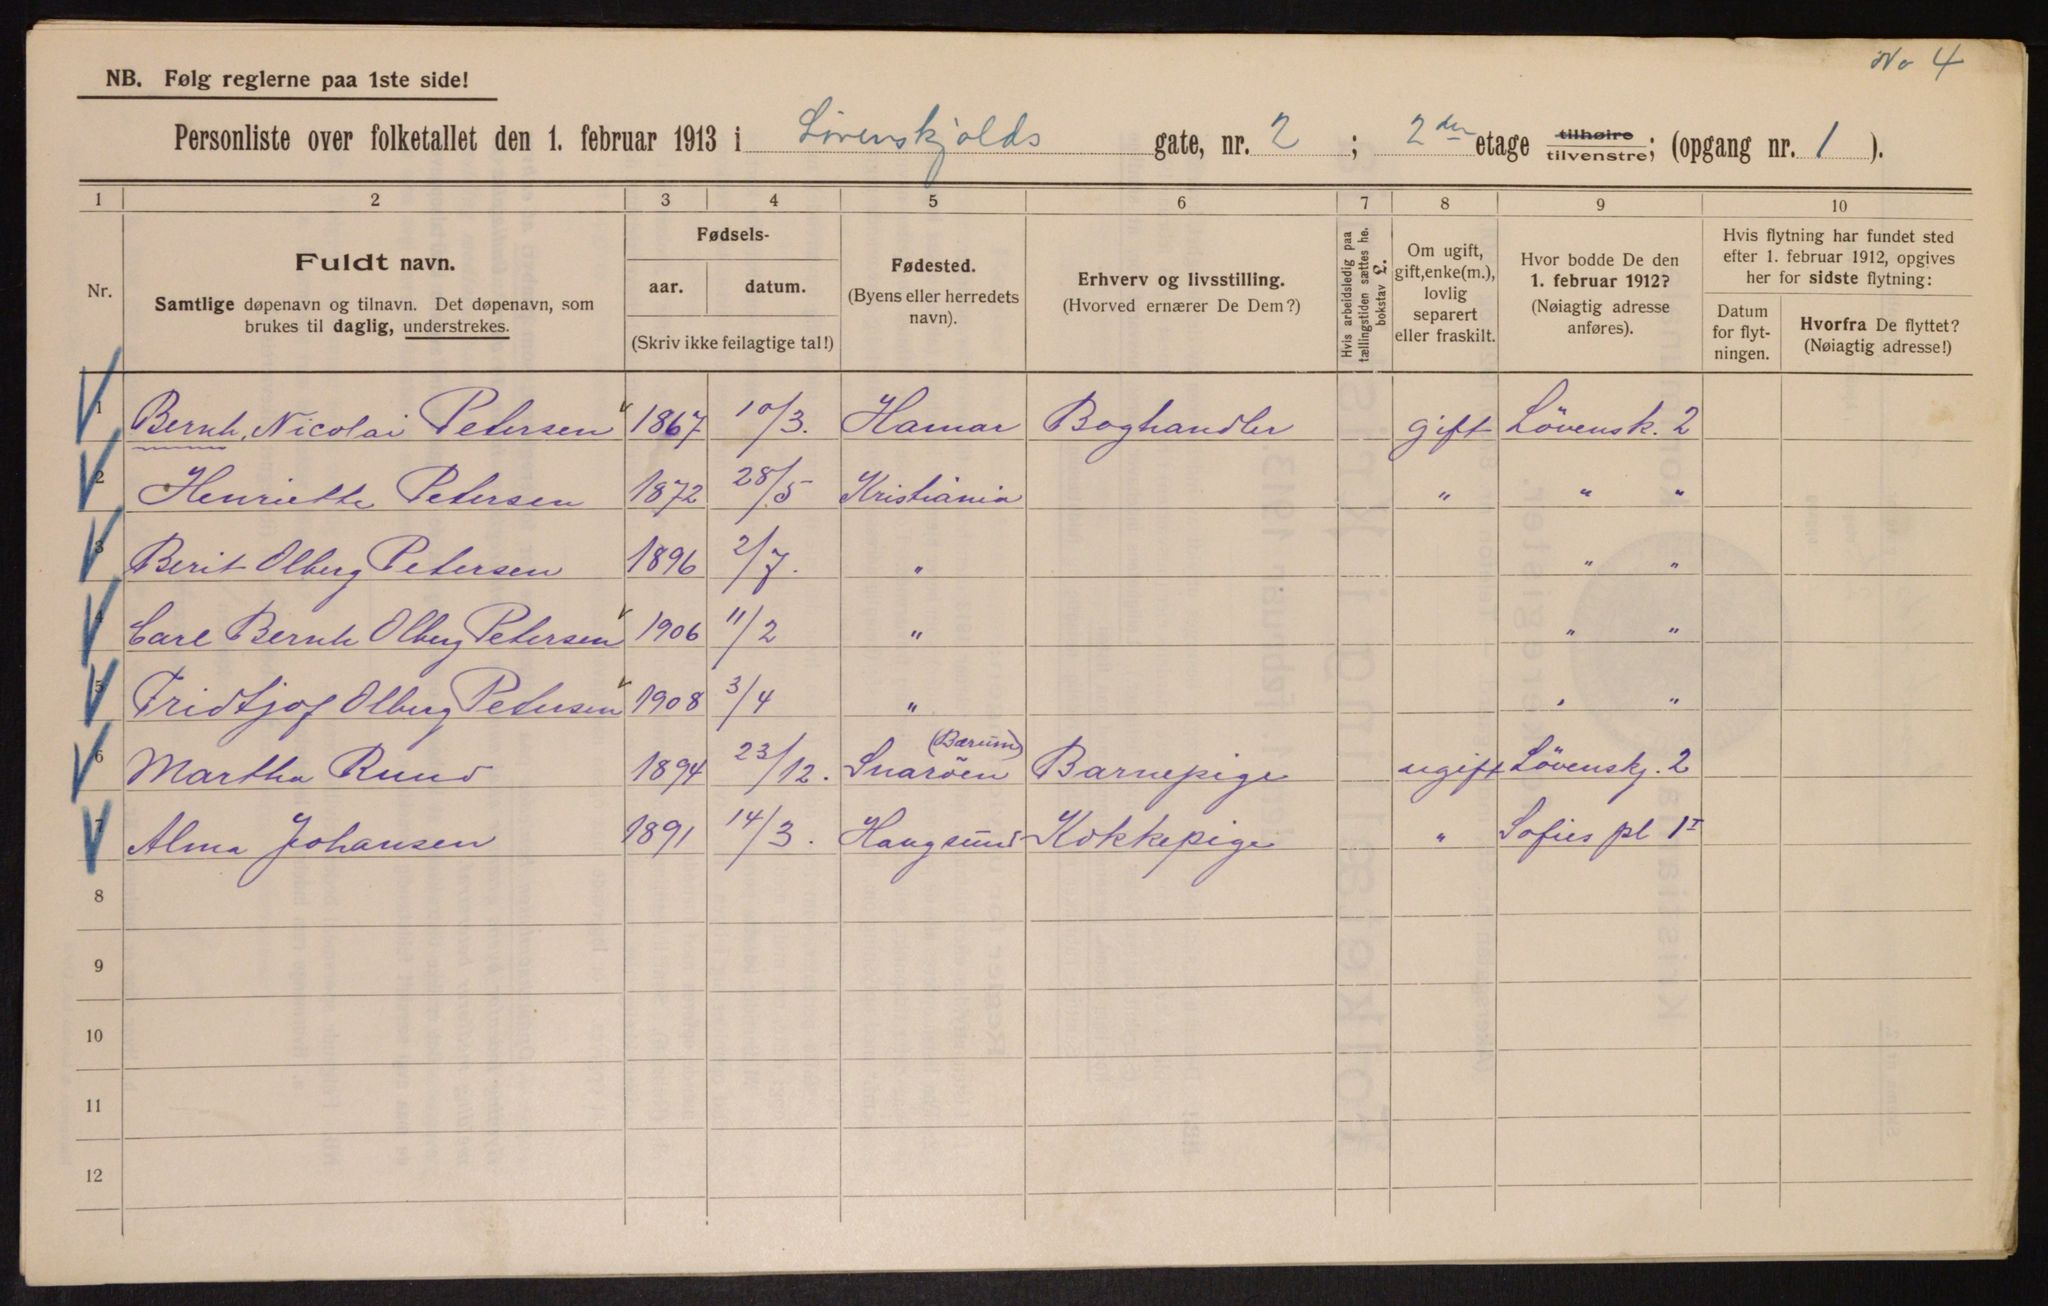 No 4
NB. Følg reglerne paa 1ste side!
Personliste over folketallet den 1. februar 1913 i Løvenskjolds gate, nr. 2 ; 2den etage tilhøire tilvenstre; (opgang nr. 1 ).
1 2 3 4 5 6 7 8 9 10
Nr.
Fuldt navn.
Samtlige døpenavn og tilnavn. Det døpenavn, som
brukes til daglig, understrekes.
Fødsels-
aar. datum.
(Skriv ikke feilagtige tal!)
Fødested.
(Byens eller herredets
navn).
Erhverv og livsstilling.
(Hvorved ernærer De Dem?)
Hvis arbeidsledig paa
tællingstiden sættes he.
bokstav L.
Om ugift,
gift, enke(m.),
lovlig
separert
eller fraskilt.
Hvor bodde De den
1. februar 1912?
(Nøiagtig adresse
anføres).
Hvis flytning har fundet sted
efter 1. februar 1912, opgives
her for sidste flytning:
Datum
for flyt-
ningen.
Hvorfra De flyttet?
(Nøiagtig adresse!)
1 Bernh. Nicolai Petersen 1867 10/3. Hamar Boghandler gift Lövensk. 2
2 Henriette Petersen 1872 28/5 Kristiania " " "
3 Berit Olberg Petersen 1896 2/7. " " "
4 Carl Bernh Olberg Petersen 1906 11/2 " " "
5 Fridtjof Olberg Petersen 1908 3/4 " " "
6 Martha Ruud 1894 23/12. Snaröen (Bærum) Barnepige ugift Lövenskj. 2
7 Alma Johansen 1891 14/3. Haugsund Kokkepige " Sofies pl 1 I
8
9
10
11
12